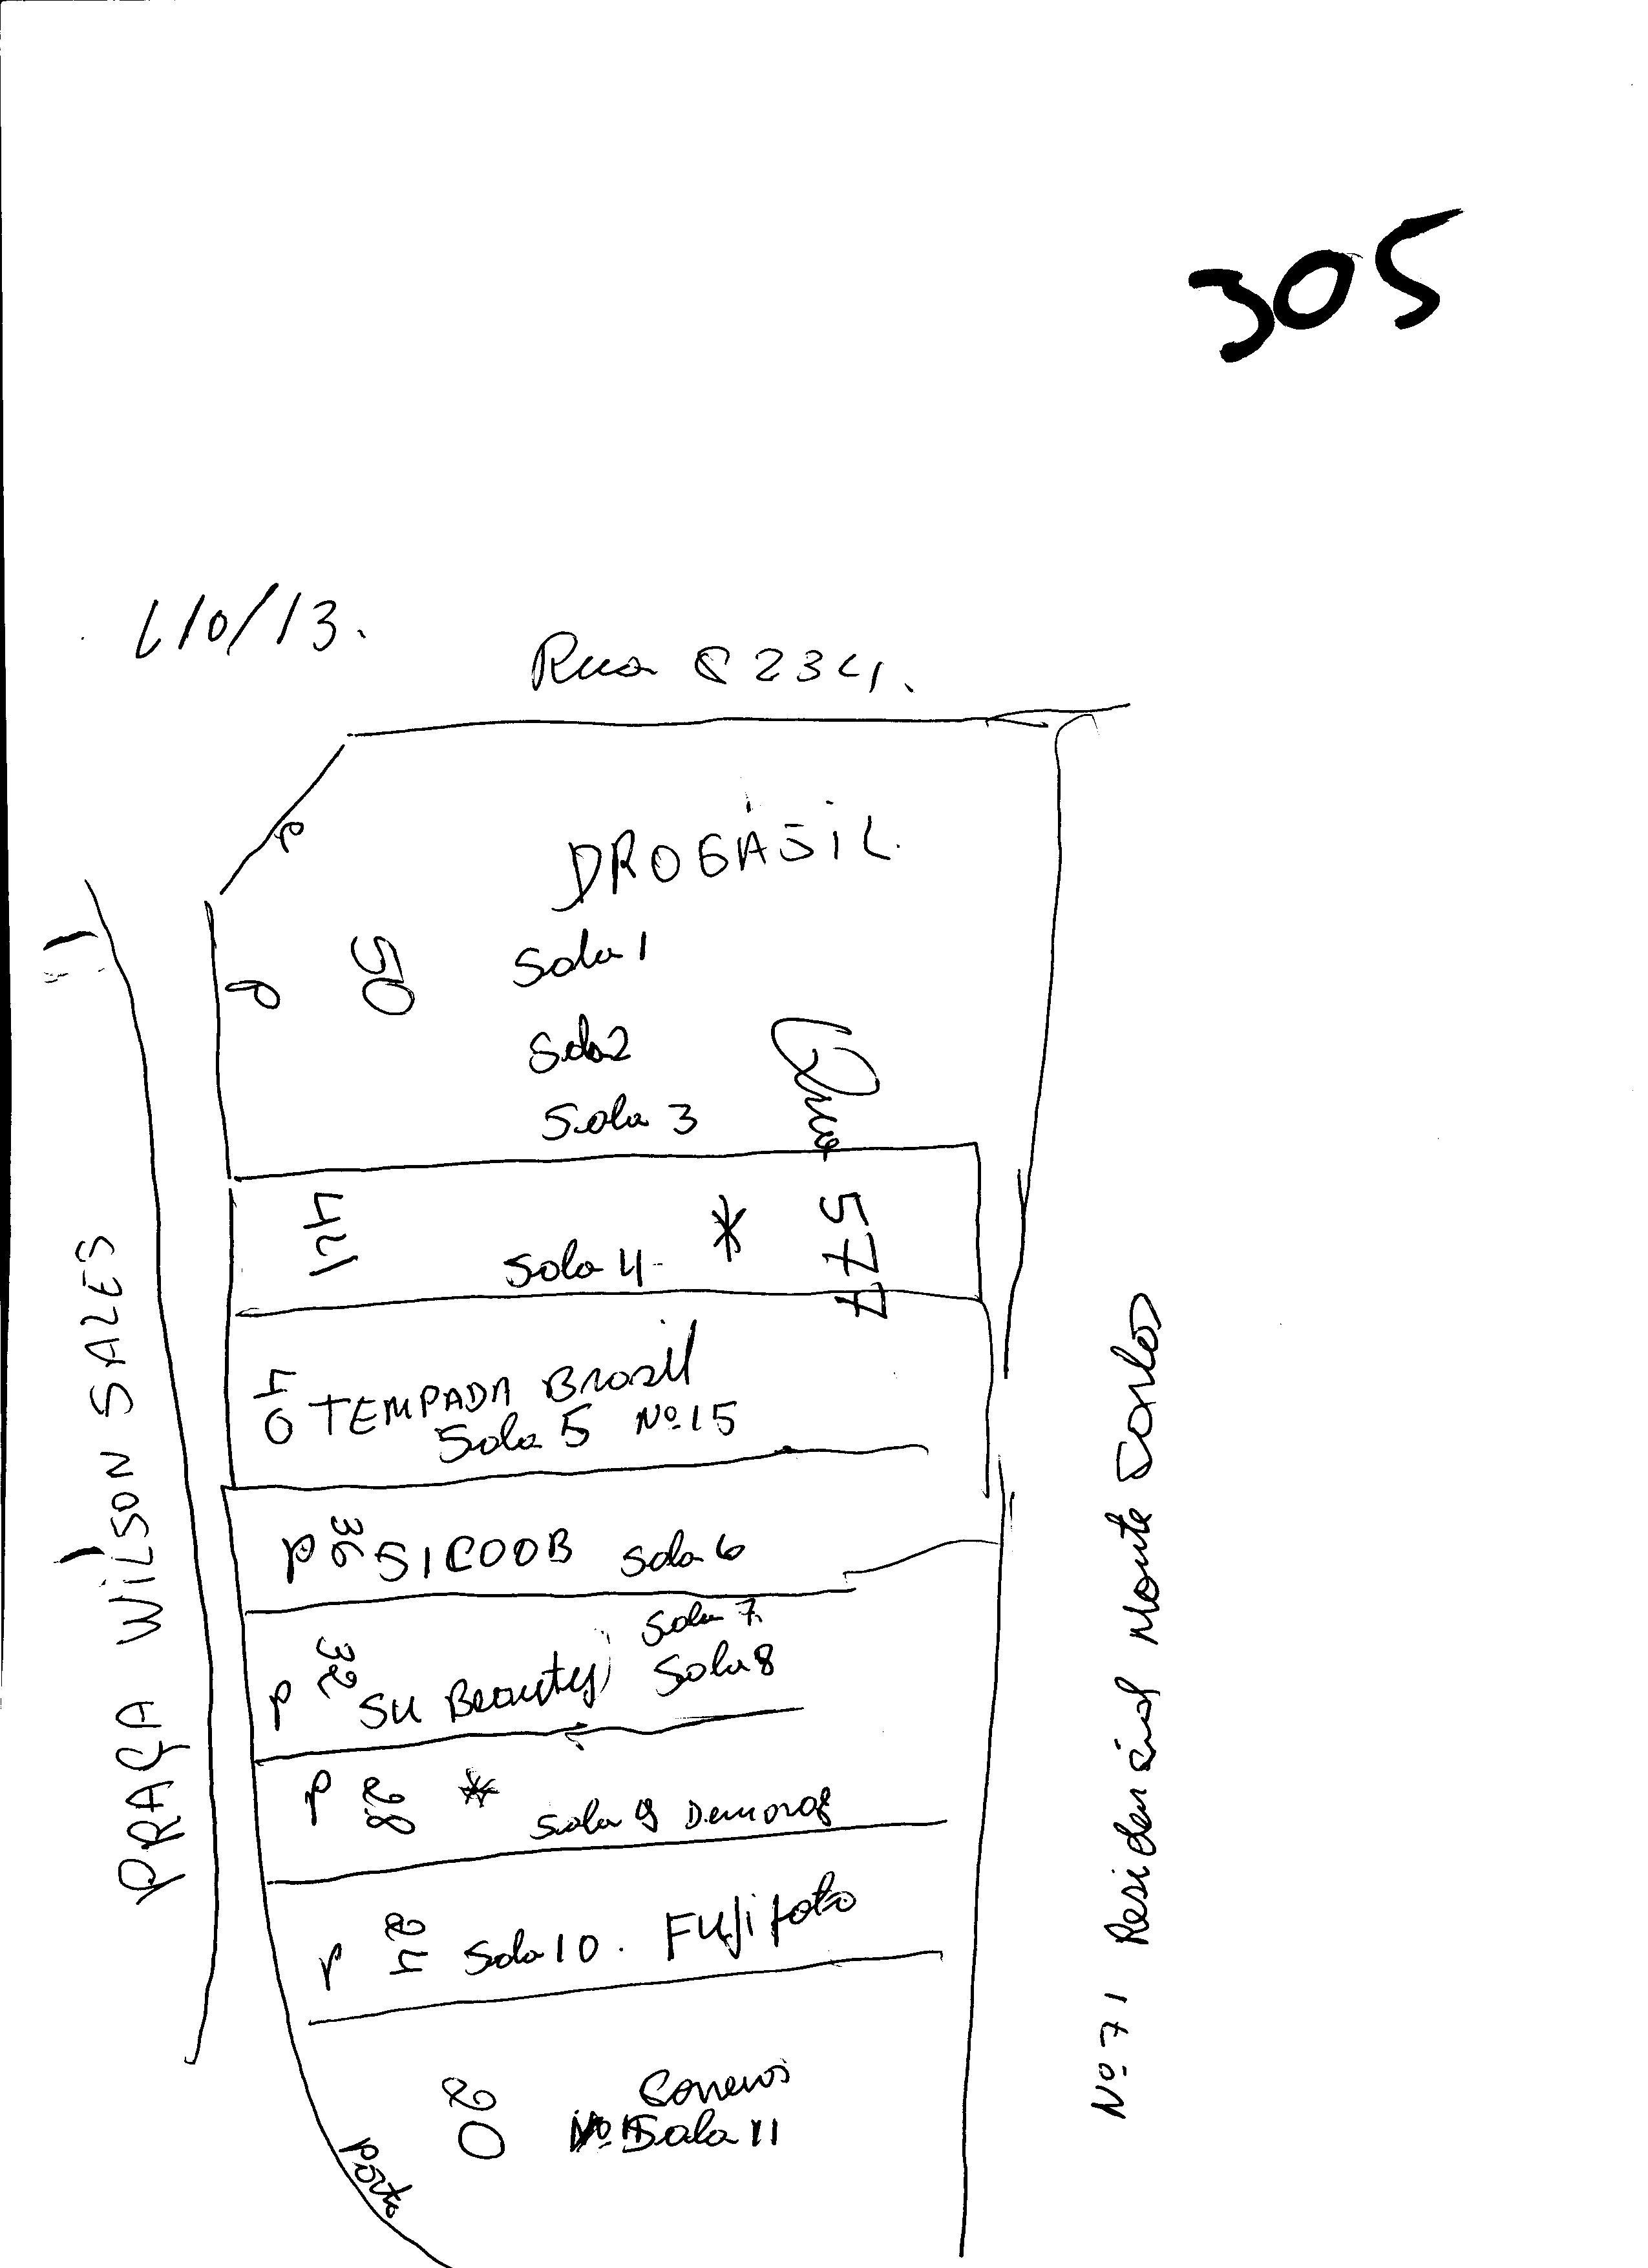 305
L10/13.
Rua C 234.
P
DROGASIL.
50
P
Sala 1
Sala 2
Sala 3
Qua 577
44
Sala 4 *
40
TEMPADA Brasil
Sala 5 Nº 15
P 36 SICOOB Sala 6
Sala 7
P 32 SU Beauty Sala 8
P 28 * Sala 9
P 24 Sala 10. FUJi foto
20
Correios
Sala 11
Porta
PRAÇA WILSON SALES
Nº 71 Residencial Monte Carlos